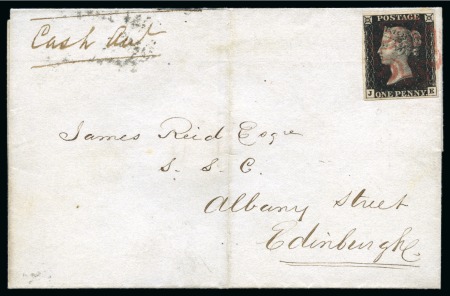 Cash Act
POSTAGE
J K
ONE PENNY
James Reid Esqr
S. S. C.
Albany Street
Edinburgh